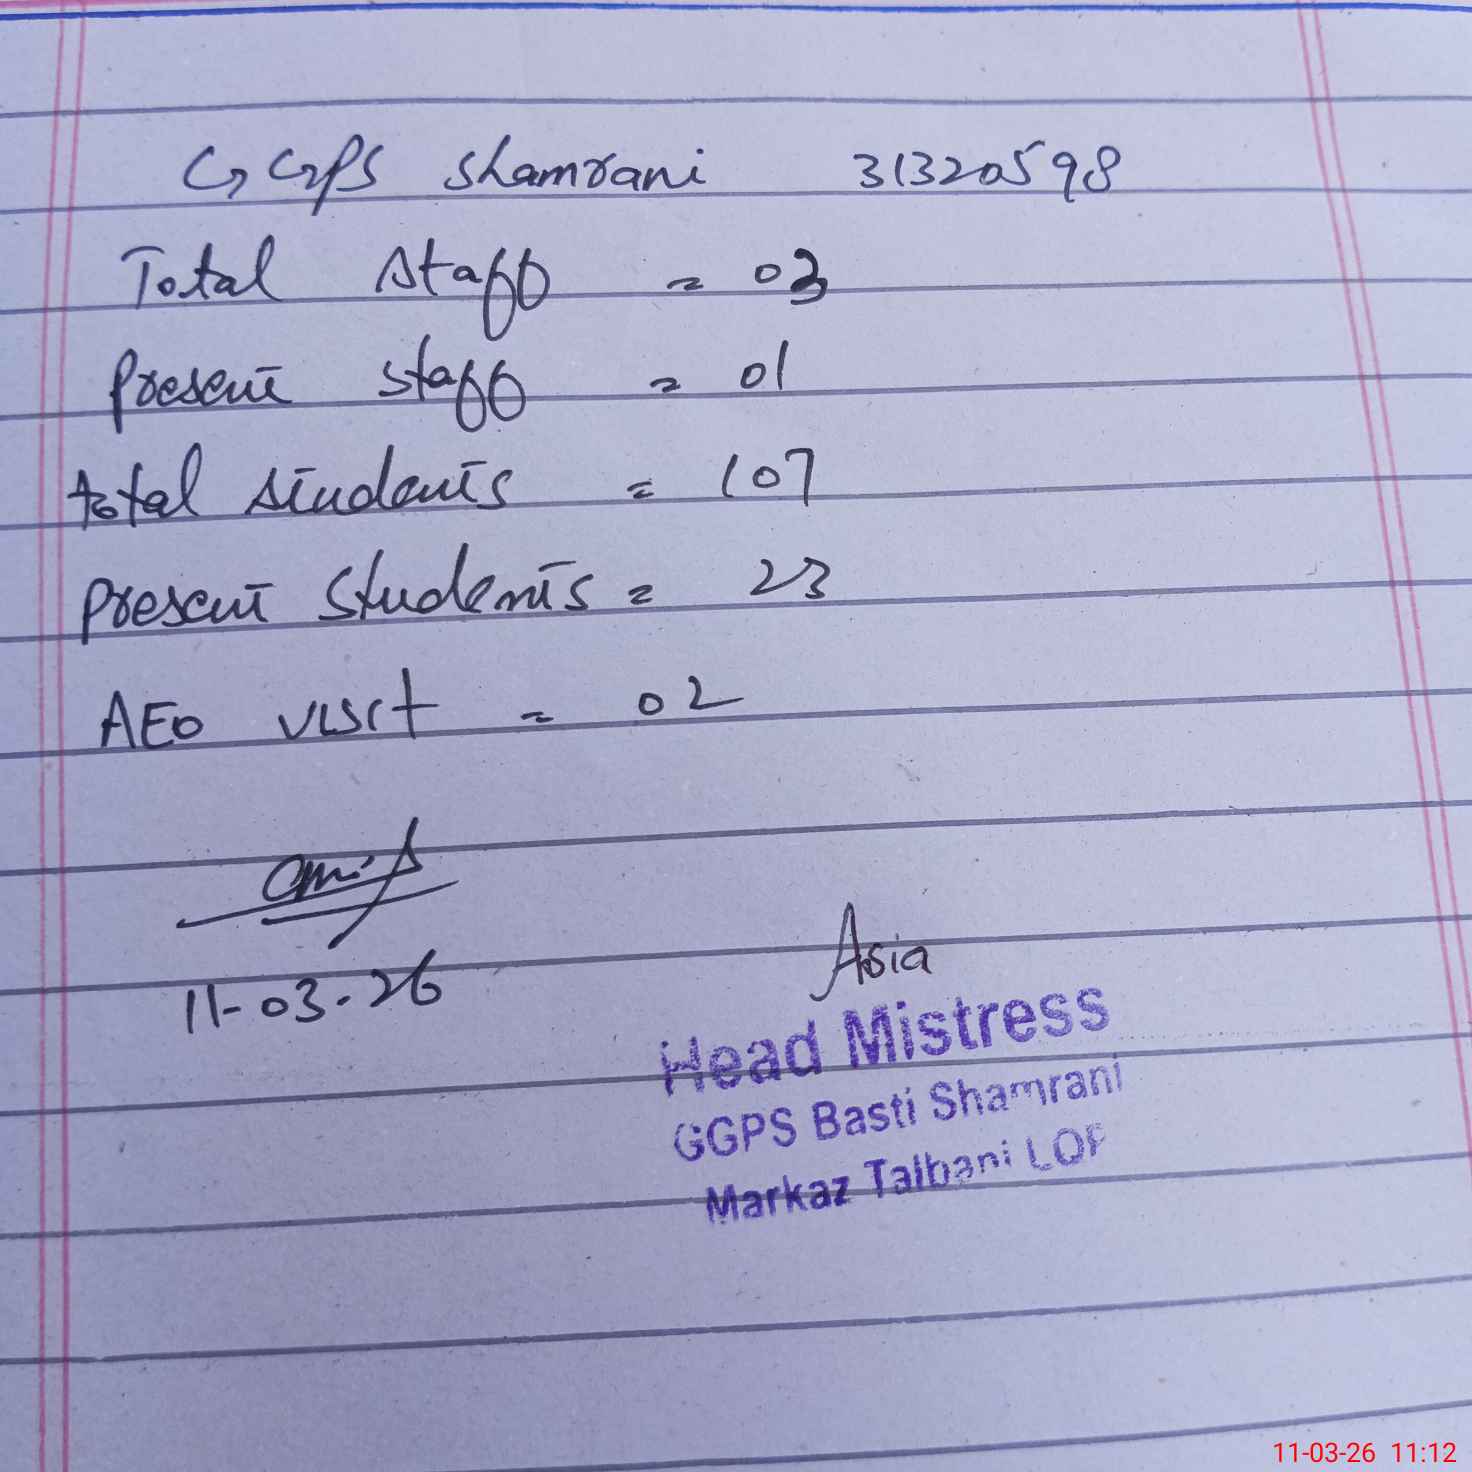 GGPS Shamrani 31320598
Total staff = 03
Present staff = 01
total students = 107
Present students = 23
AEO visit = 02
11-03-26
Asia
Head Mistress
GGPS Basti Shamrani
Markaz Talbani LOP
11-03-26 11:12